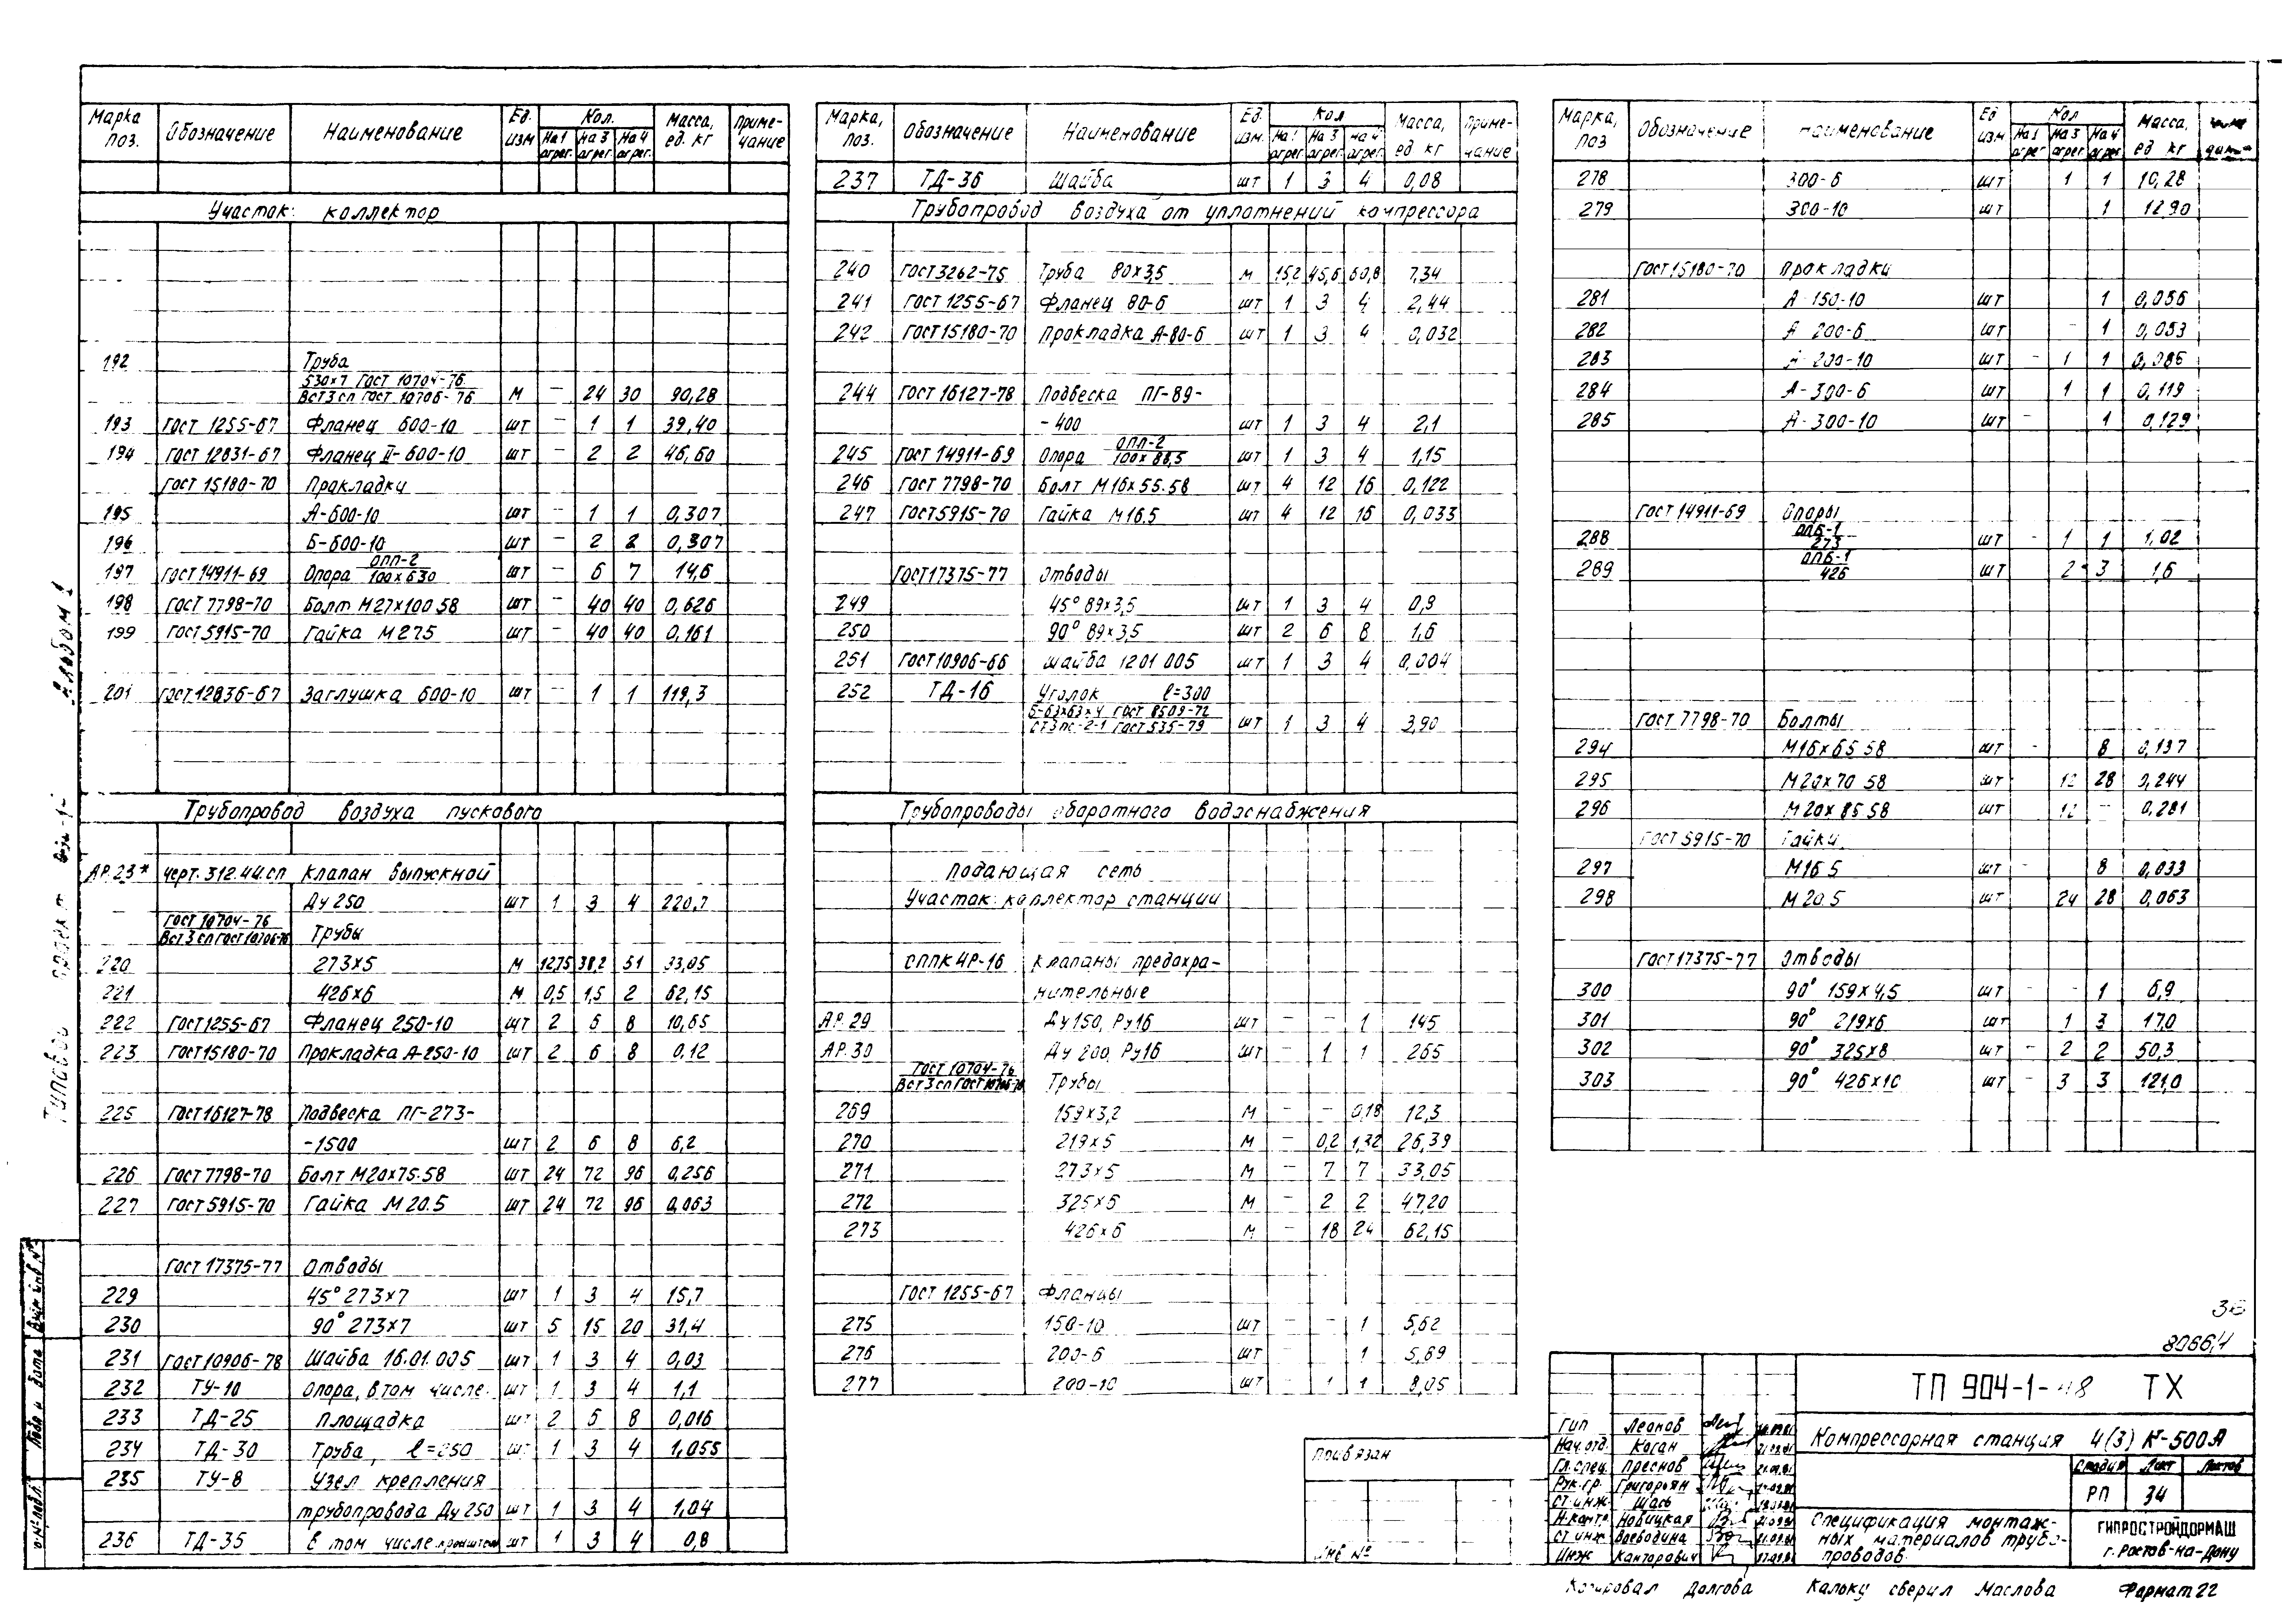 Марка поз. Обозначение Наименование Ед. изм Кол. На 1 агрег. На 3 агрег. На 4 агрег. Масса, ед. кг Приме-чание
Участок: коллектор
192 Труба
530х7 ГОСТ 10704-76
ВСт3сп ГОСТ 10706-76 М – 24 30 90,28
193 ГОСТ 1255-67 Фланец 600-10 шт – 1 1 39,40
194 ГОСТ 12831-67 Фланец II-600-10 шт – 2 2 46,60
ГОСТ 15180-70 Прокладки
195 А-600-10 шт – 1 1 0,307
196 Б-600-10 шт – 2 2 0,307
197 ГОСТ 14911-69 Опора ОПП-2 100х630 шт – 6 7 14,6
198 ГОСТ 7798-70 Болт М27х100 58 шт – 40 40 0,626
199 ГОСТ 5915-70 Гайка М27.5 шт – 40 40 0,161
201 ГОСТ 12836-67 Заглушка 600-10 шт – 1 1 119,3
Трубопровод воздуха пускового
АР.23* черт.312.44.сп Клапан выпускной
Ду 250 шт 1 3 4 220,7
ГОСТ 10704-76
ВСт3сп ГОСТ 10706-76 Трубы
220 273х5 М 12,75 38,2 51 33,05
221 426х6 М 0,5 1,5 2 62,15
222 ГОСТ 1255-67 Фланец 250-10 шт 2 6 8 10,65
223 ГОСТ 15180-70 Прокладка А-250-10 шт 2 6 8 0,12
225 ГОСТ 16127-78 Подвеска ПГ-273-
-1500 шт 2 6 8 6,2
226 ГОСТ 7798-70 Болт М20х75.58 шт 24 72 96 0,256
227 ГОСТ 5915-70 Гайка М20.5 шт 24 72 96 0,063
ГОСТ 17375-77 Отводы
229 45° 273х7 шт 1 3 4 15,7
230 90° 273х7 шт 5 15 20 31,4
231 ГОСТ 10906-78 Шайба 16.01.005 шт 1 3 4 0,03
232 ТУ-10 Опора, в том числе: шт 1 3 4 1,1
233 ТД-25 Площадка шт 2 6 8 0,016
234 ТД-30 Труба, ℓ=250 шт 1 3 4 1,055
235 ТУ-8 Узел крепления
трубопровода Ду 250 шт 1 3 4 1,04
236 ТД-35 в том числе кронштейн шт 1 3 4 0,8
Марка, поз. Обозначение Наименование Ед. изм. Кол На 1 агрег. На 3 агрег. На 4 агрег. Масса, ед кг Приме-чание
237 ТД-36 Шайба шт 1 3 4 0,08
Трубопровод воздуха от уплотнений компрессора
240 ГОСТ 3262-75 Труба 80х3,5 М 15,2 45,6 60,8 7,34
241 ГОСТ 1255-67 Фланец 80-6 шт 1 3 4 2,44
242 ГОСТ 15180-70 Прокладка А-80-6 шт 1 3 4 0,032
244 ГОСТ 16127-78 Подвеска ПГ-89-
-400 шт 1 3 4 2,1
245 ГОСТ 14911-69 Опора ОПП-2 100х88,5 шт 1 3 4 1,15
246 ГОСТ 7798-70 Болт М16х55.58 шт 4 12 16 0,122
247 ГОСТ 5915-70 Гайка М16.5 шт 4 12 16 0,033
ГОСТ 17375-77 Отводы
249 45° 89х3,5 шт 1 3 4 0,9
250 90° 89х3,5 шт 2 6 8 1,6
251 ГОСТ 10906-66 Шайба 12 01 005 шт 1 3 4 0,004
252 ТД-16 Уголок ℓ=300
Б-63х63х4 ГОСТ 8509-72
Ст3пс-2-1 ГОСТ 535-79 шт 1 3 4 3,90
Трубопроводы оборотного водоснабжения
Подающая сеть
Участок: коллектор станции
СППК 4Р-16 Клапаны предохра-
нительные
АР.29 Ду 150, Ру16 шт – – 1 145
АР.30 Ду 200, Ру16 шт – 1 1 265
ГОСТ 10704-76
ВСт3сп ГОСТ 10706-76 Трубы
269 159х3,2 М – – 0,18 12,3
270 219х5 М – 0,2 1,32 26,39
271 273х5 М – 7 7 33,05
272 325х6 М – 2 2 47,20
273 426х6 М – 18 24 62,15
ГОСТ 1255-67 Фланцы
275 150-10 шт – – 1 5,62
276 200-6 шт 1 5,89
277 200-10 шт – 1 1 8,05
Марка, поз Обозначение Наименование Ед изм Кол На 1 агрег На 3 агрег На 4 агрег Масса, ед кг
278 300-6 шт 1 1 10,28
279 300-10 шт 1 12,90
ГОСТ 15180-70 Прокладки
281 А-150-10 шт 1 0,056
282 А 200-6 шт – 1 0,053
283 А-200-10 шт – 1 1 0,086
284 А-300-6 шт 1 1 0,119
285 А-300-10 шт – 1 0,129
ГОСТ 14911-69 Опоры
288 ОПБ-1 273 шт – 1 1 1,02
289 ОПБ-1 426 шт 2 3 1,6
ГОСТ 7798-70 Болты
294 М16х65 58 шт – 8 0,137
295 М20х70 58 шт – 12 28 0,244
296 М20х85 58 шт 12 – 0,281
ГОСТ 5915-70 Гайки
297 М16 5 шт – 8 0,033
298 М20.5 шт 24 28 0,063
ГОСТ 17375-77 Отводы
300 90° 159х4,5 шт – – 1 6,9
301 90° 219х6 шт 1 3 17,0
302 90° 325х8 шт – 2 2 50,3
303 90° 426х10 шт – 3 3 121,0
Альбом 1
36
8066/4
Привязан
Инв №
ТП 904-1-48 ТХ
Гип Леонов
Нач.отд. Коган
Гл.спец. Преснов
Рук.гр. Григорьян
Ст.инж. Шась
Н.контр. Новицкая
Ст.инж Воеводина
Инж Канторович
Компрессорная станция 4(3) К-500А
Стадия Лист Листов
РП 34
Спецификация монтаж-
ных материалов трубо-
проводов.
ГИПРОСТРОЙДОРМАШ
г. Ростов-на-Дону
Копировал Долгова Кальку сверил Маслова Формат 22